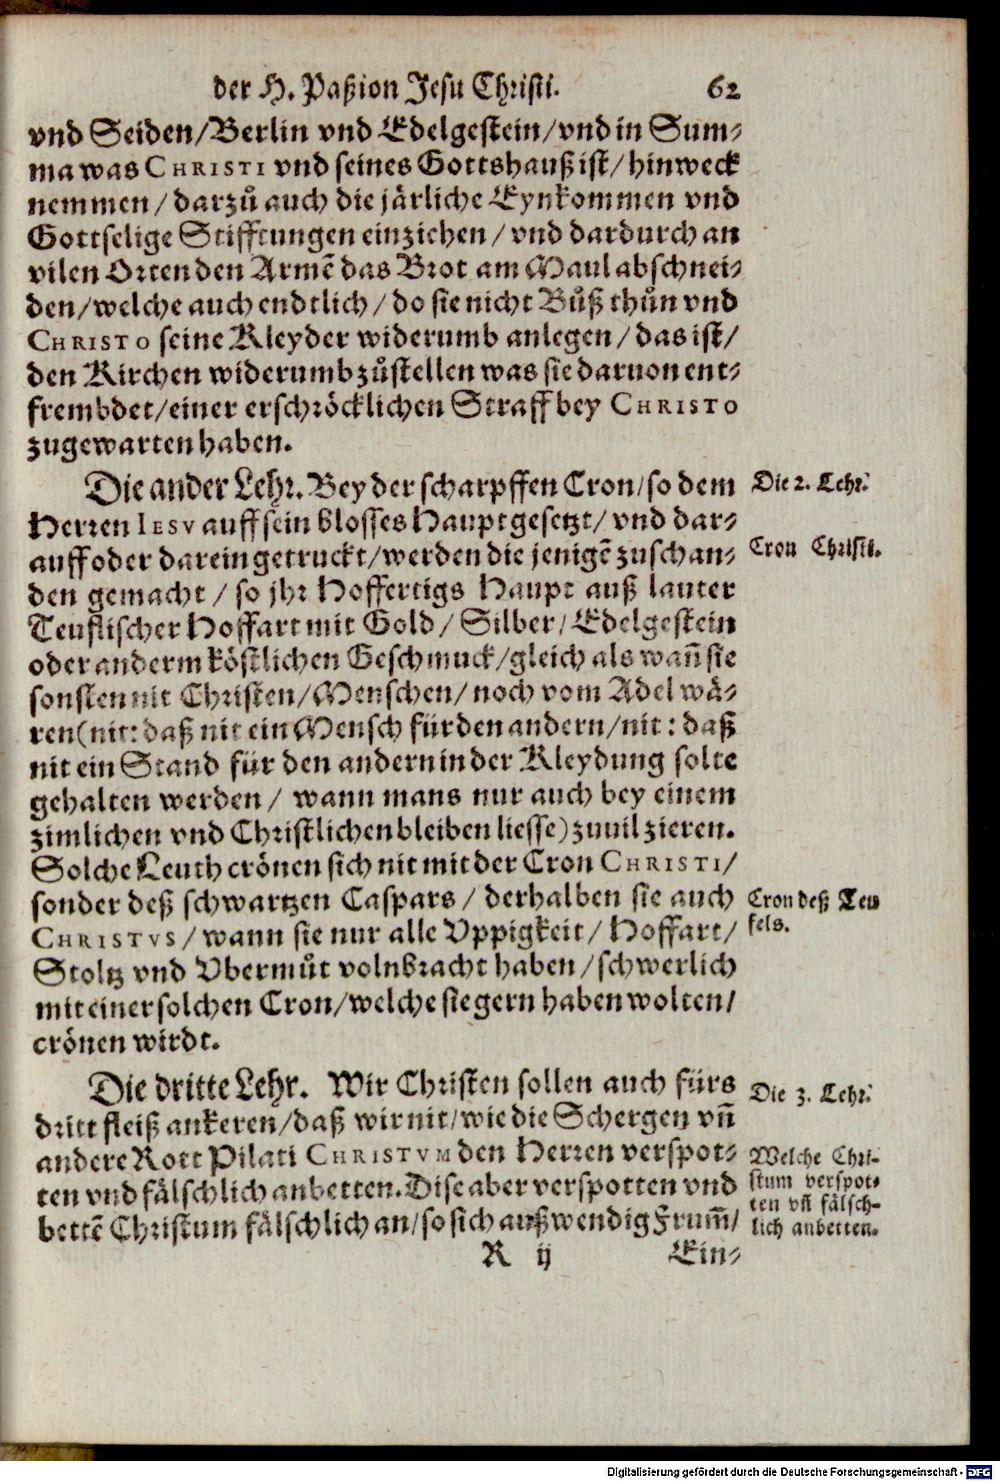 der H. Paßion Jesu Christi. 62
vnd Seiden/Berlin vnd Edelgestein/vnd in Sum⸗
ma was CHRISTI vnd seines Gottshauß ist/hinweck
nemmen/darzů auch die järliche Eynkommen vnd
Gottselige Stifftungen einziehen/vnd dardurch an
vilen Orten den Armē das Brot am Maul abschnei⸗
den/welche auch endtlich/do sie nicht Bůß thůn vnd
CHRISTO seine Kleyder widerumb anlegen/das ist/
den Kirchen widerumb zůstellen was sie daruon ent⸗
frembdet/einer erschröcklichen Straff bey CHRISTO
zugewarten haben.
Die ander Lehr. Bey der scharpffen Cron/so dem
Herren IESV auff sein blosses Haupt gesetzt/vnd dar⸗
auff oder darein getruckt/werden die jenigē zuschan⸗
den gemacht/so jhr Hoffertigs Haupt auß lauter
Teuflischer Hoffart mit Gold/Silber/Edelgestein
oder anderm köstlichen Geschmuck/gleich als wañ sie
sonsten nit Christen/Menschen/noch vom Adel wä⸗
ren(nit: daß nit ein Mensch für den andern/nit: daß
nit ein Stand für den andern in der Kleydung solte
gehalten werden/wann mans nur auch bey einem
zimlichen vnd Christlichen bleiben liesse)zuuil zieren.
Solche Leuth crönen sich nit mit der Cron CHRISTI/
sonder deß schwartzen Caspars/derhalben sie auch
CHRISTVS/wann sie nur alle Vppigkeit/Hoffart/
Stoltz vnd Vbermůt volnbracht haben/schwerlich
mit einer solchen Cron/welche sie gern haben wolten/
crönen wirdt.
Die dritte Lehr. Wir Christen sollen auch fürs
dritt fleiß ankeren/daß wir nit/wie die Schergen vñ
andere Rott Pilati CHRISTVM den Herren verspot⸗
ten vnd fälschlich anbetten. Dise aber verspotten vnd
bettē Christum fälschlich an/so sich außwendig From̃/
R ij Ein⸗
Die 2. Lehr.
Cron Christi.
Cron deß Teu
fels.
Die 3. Lehr.
Welche Chri-
stum verspot⸗
ten vñ fälsch-
lich anbetten.
Digitalisierung gefördert durch die Deutsche Forschungsgemeinschaft - DFG